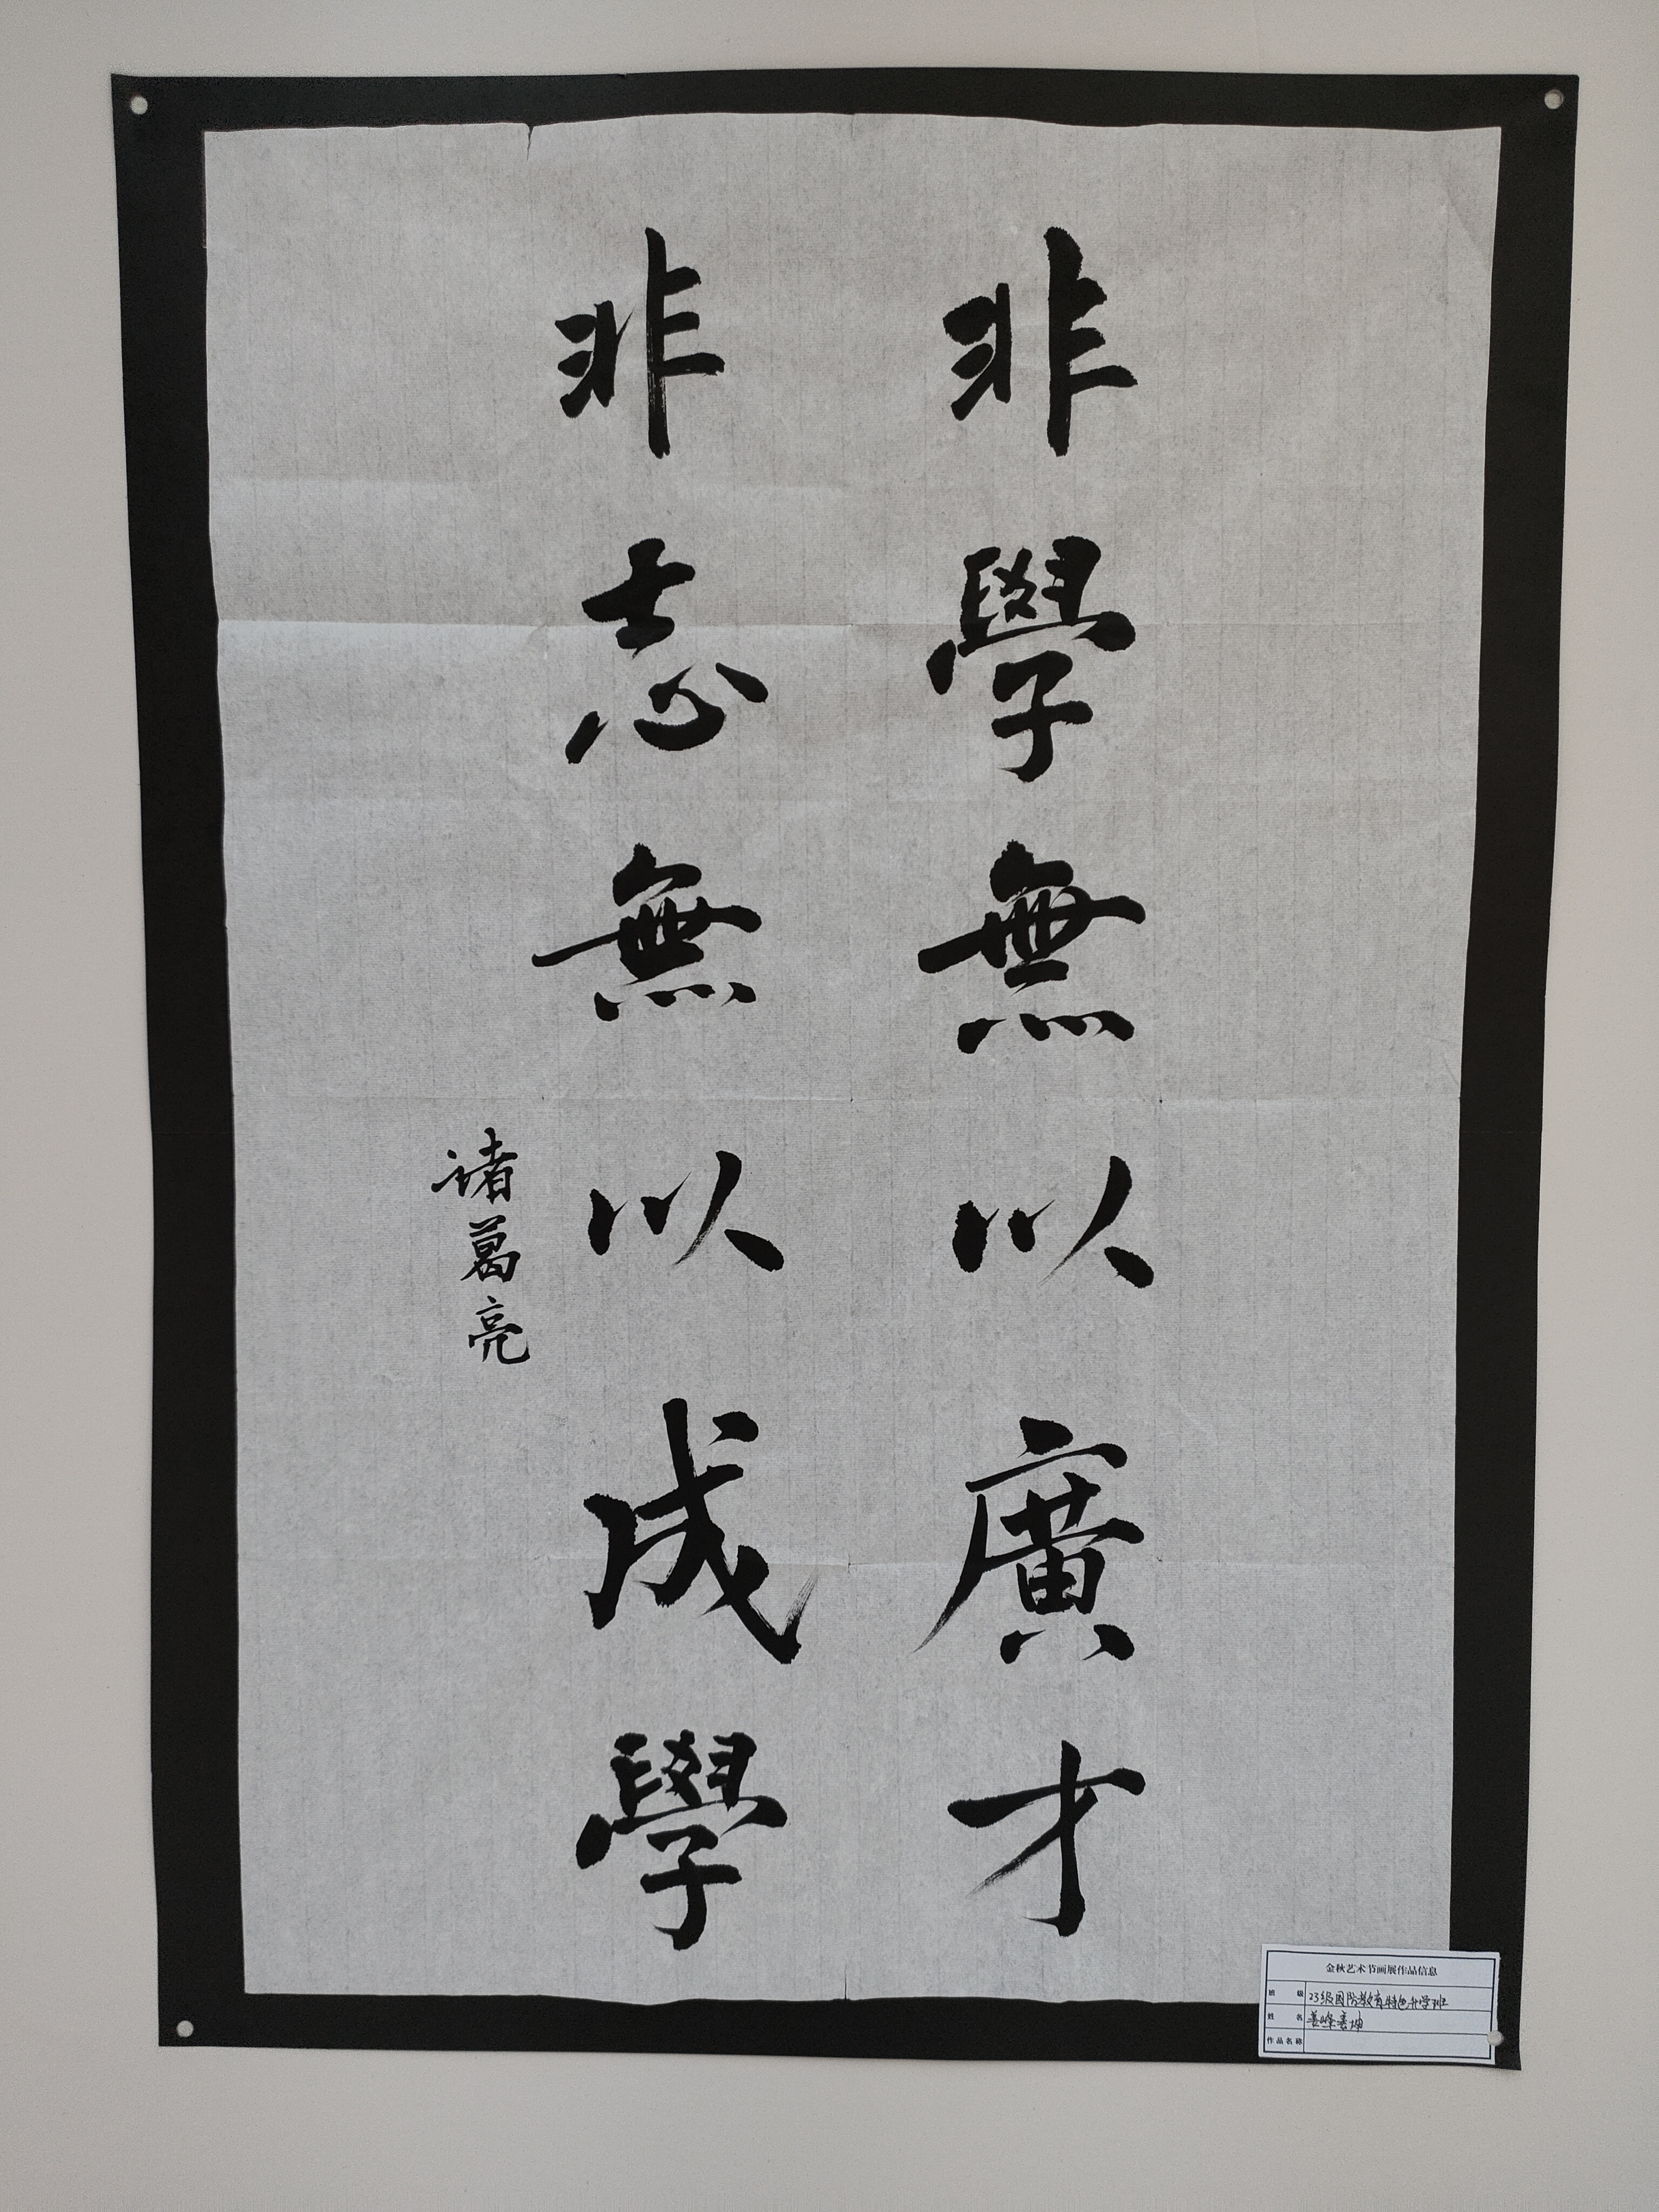 非學無以廣才
非志無以成學
诸葛亮
金秋艺术节画展作品信息
班级 23级国防教育特色升学班
姓名
作品名称